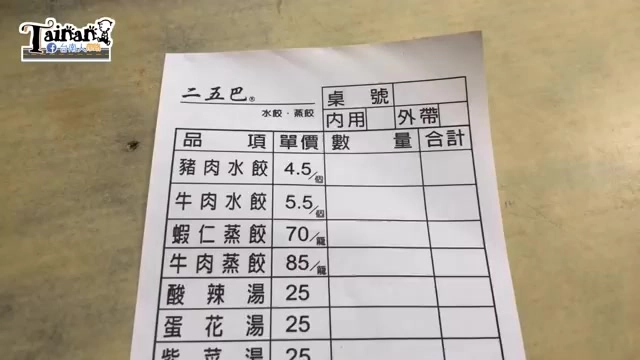 Tainan
台南人
二五巴®
水餃·蒸餃
桌號
內用 外帶
品項 單價 數量 合計
豬肉水餃 4.5/個
牛肉水餃 5.5/個
蝦仁蒸餃 70/籠
牛肉蒸餃 85/籠
酸辣湯 25
蛋花湯 25
紫菜湯 25